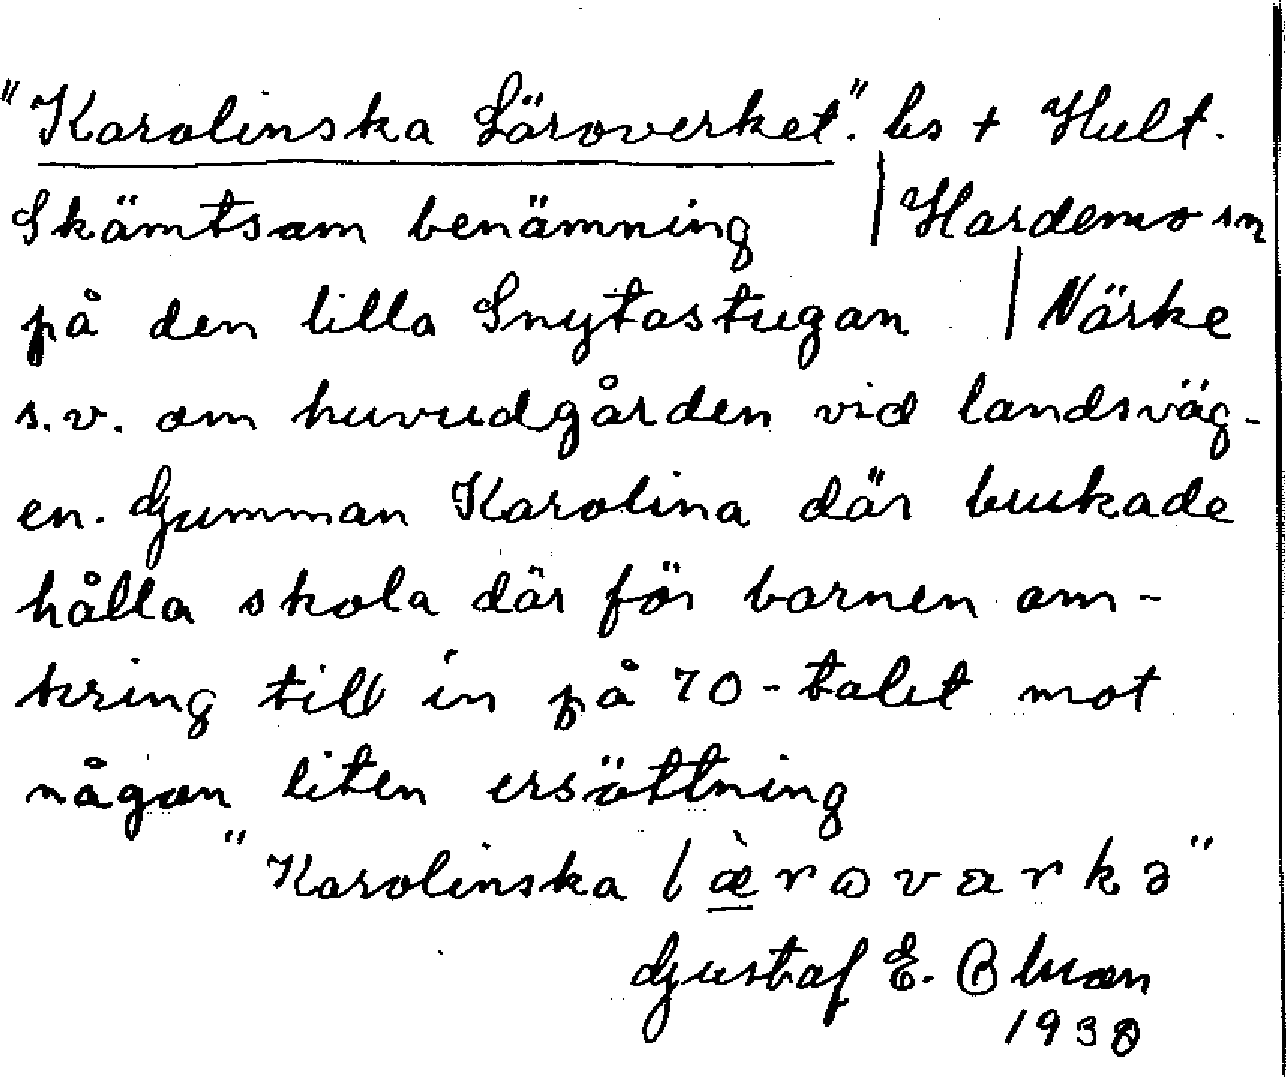 "Karolinska Läroverket". bs + Hult.
Skämtsam benämning | Hardemo sn
på den lilla Snytastugan | Närke
s.v. om huvudgården vid landsväg-
en. Gumman Karolina där brukade
hålla skola där för barnen om-
kring till in på 70-talet mot
någon liten ersättning
"Karolinska læ̀rovarkə"
Gustaf E.
1938